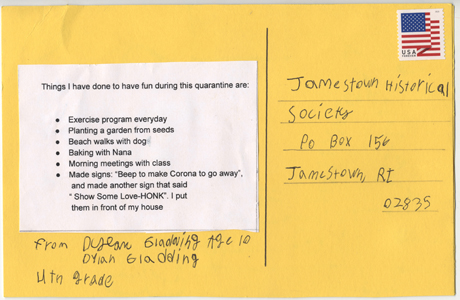 Things I have done to have fun during this quarantine are:
● Exercise program everyday
● Planting a garden from seeds
● Beach walks with dog
● Baking with Nana
● Morning meetings with class
● Made signs: "Beep to make Corona to go away",
and made another sign that said
" Show Some Love-HONK". I put
them in front of my house
From Dylan Gladding Age 10
Dylan Gladding
4th grade
USA
Jamestown Historical
Society
PO Box 156
Jamestown, RI
02835